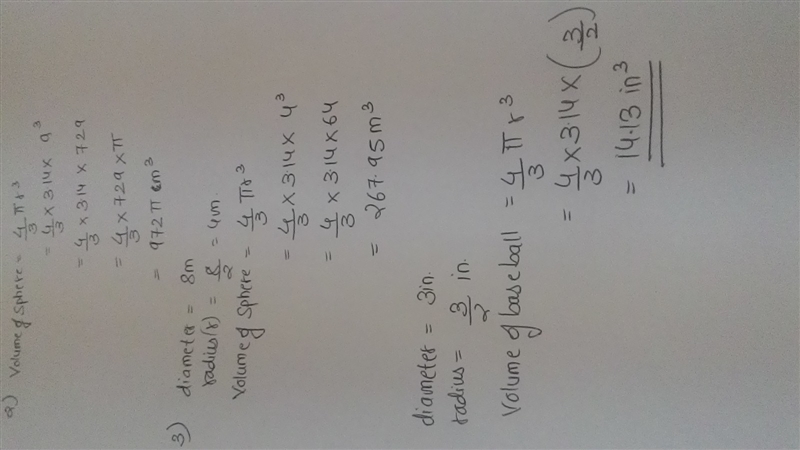 2) Volume of Sphere = 4/3 πr³
= 4/3 × 3.14 × 9³
= 4/3 × 3.14 × 729
= 4/3 × 729 × π
= 972 π cm³
3) diameter = 8m
radius(r) = 8/2 = 4m.
Volume of Sphere = 4/3 πr³
= 4/3 × 3.14 × 4³
= 4/3 × 3.14 × 64
= 267.95 m³
diameter = 3in.
radius = 3/2 in.
Volume of baseball = 4/3 π r³
= 4/3 × 3.14 × (3/2)
= 14.13 in³